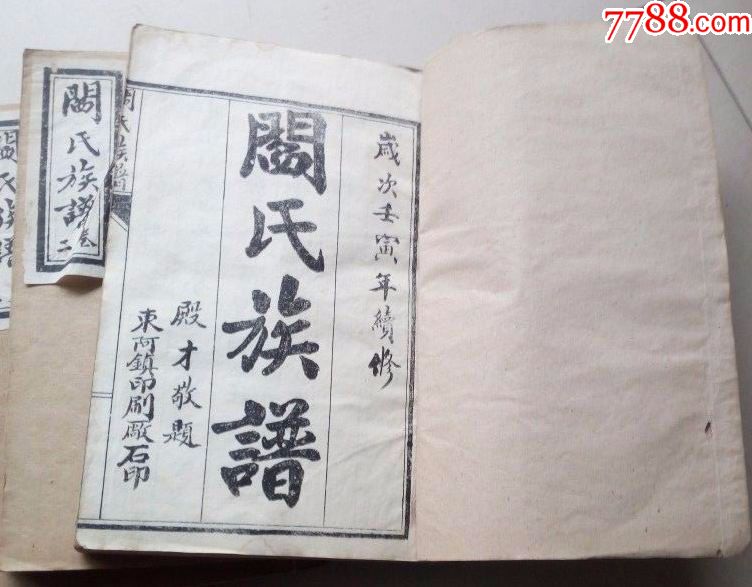 7788.com
歲次壬寅年續修
閻氏族譜
殿才敬題
東阿鎮印刷厰石印
閻氏族譜
閻氏族譜卷二
閻氏族譜